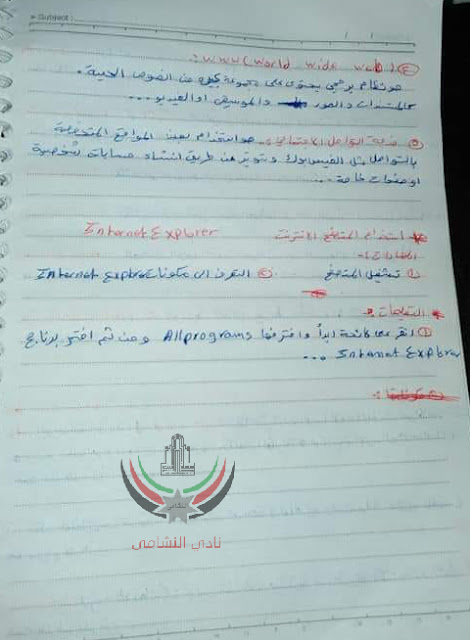 Subject:
④ www (world wide web):
هو نظام برمجي يحتوي على مجموعة كبيرة من النصوص الحية.
كالمستندات والصور والموسيقى او الفيديو...
⑤ خدمة التواصل الاجتماعي: هو استخدام بعض المواقع المتخصصة
بالتواصل مثل الفيس بوك وتويتر عن طريق انشاء حسابات شخصية
او صفحات خاصة...
* استخدام المتصفح الانترنت Internet Explorer
المهارات:
① تشغيل المتصفح ② التعرف الى مكونات Internet Explorer
* التعليمات:
① انقر على قائمة ابدأ واختر منها All programs ومن ثم اختر برنامج
Internet Explorer ...
نادي النشامى